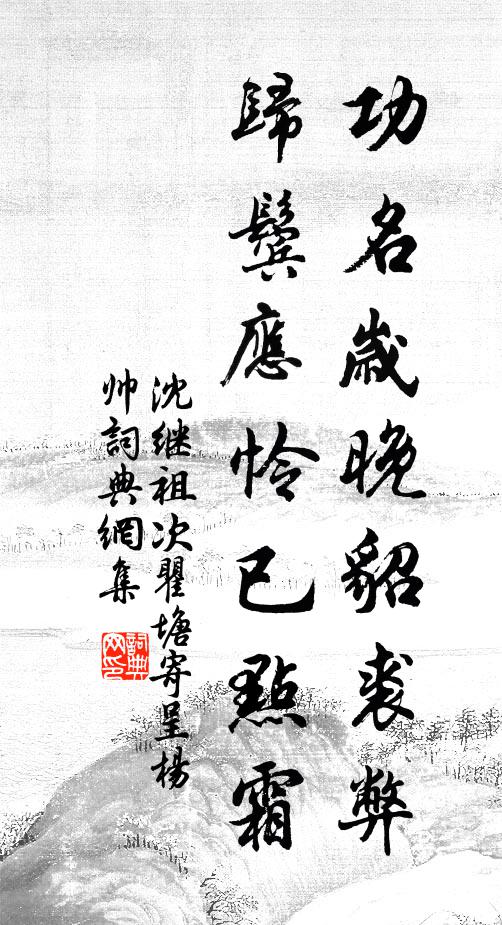 功名歲晚貂裘弊
歸鬢應怜已點霜
沈继祖次瞿塘寄呈楊
帅詞典網集
詞典